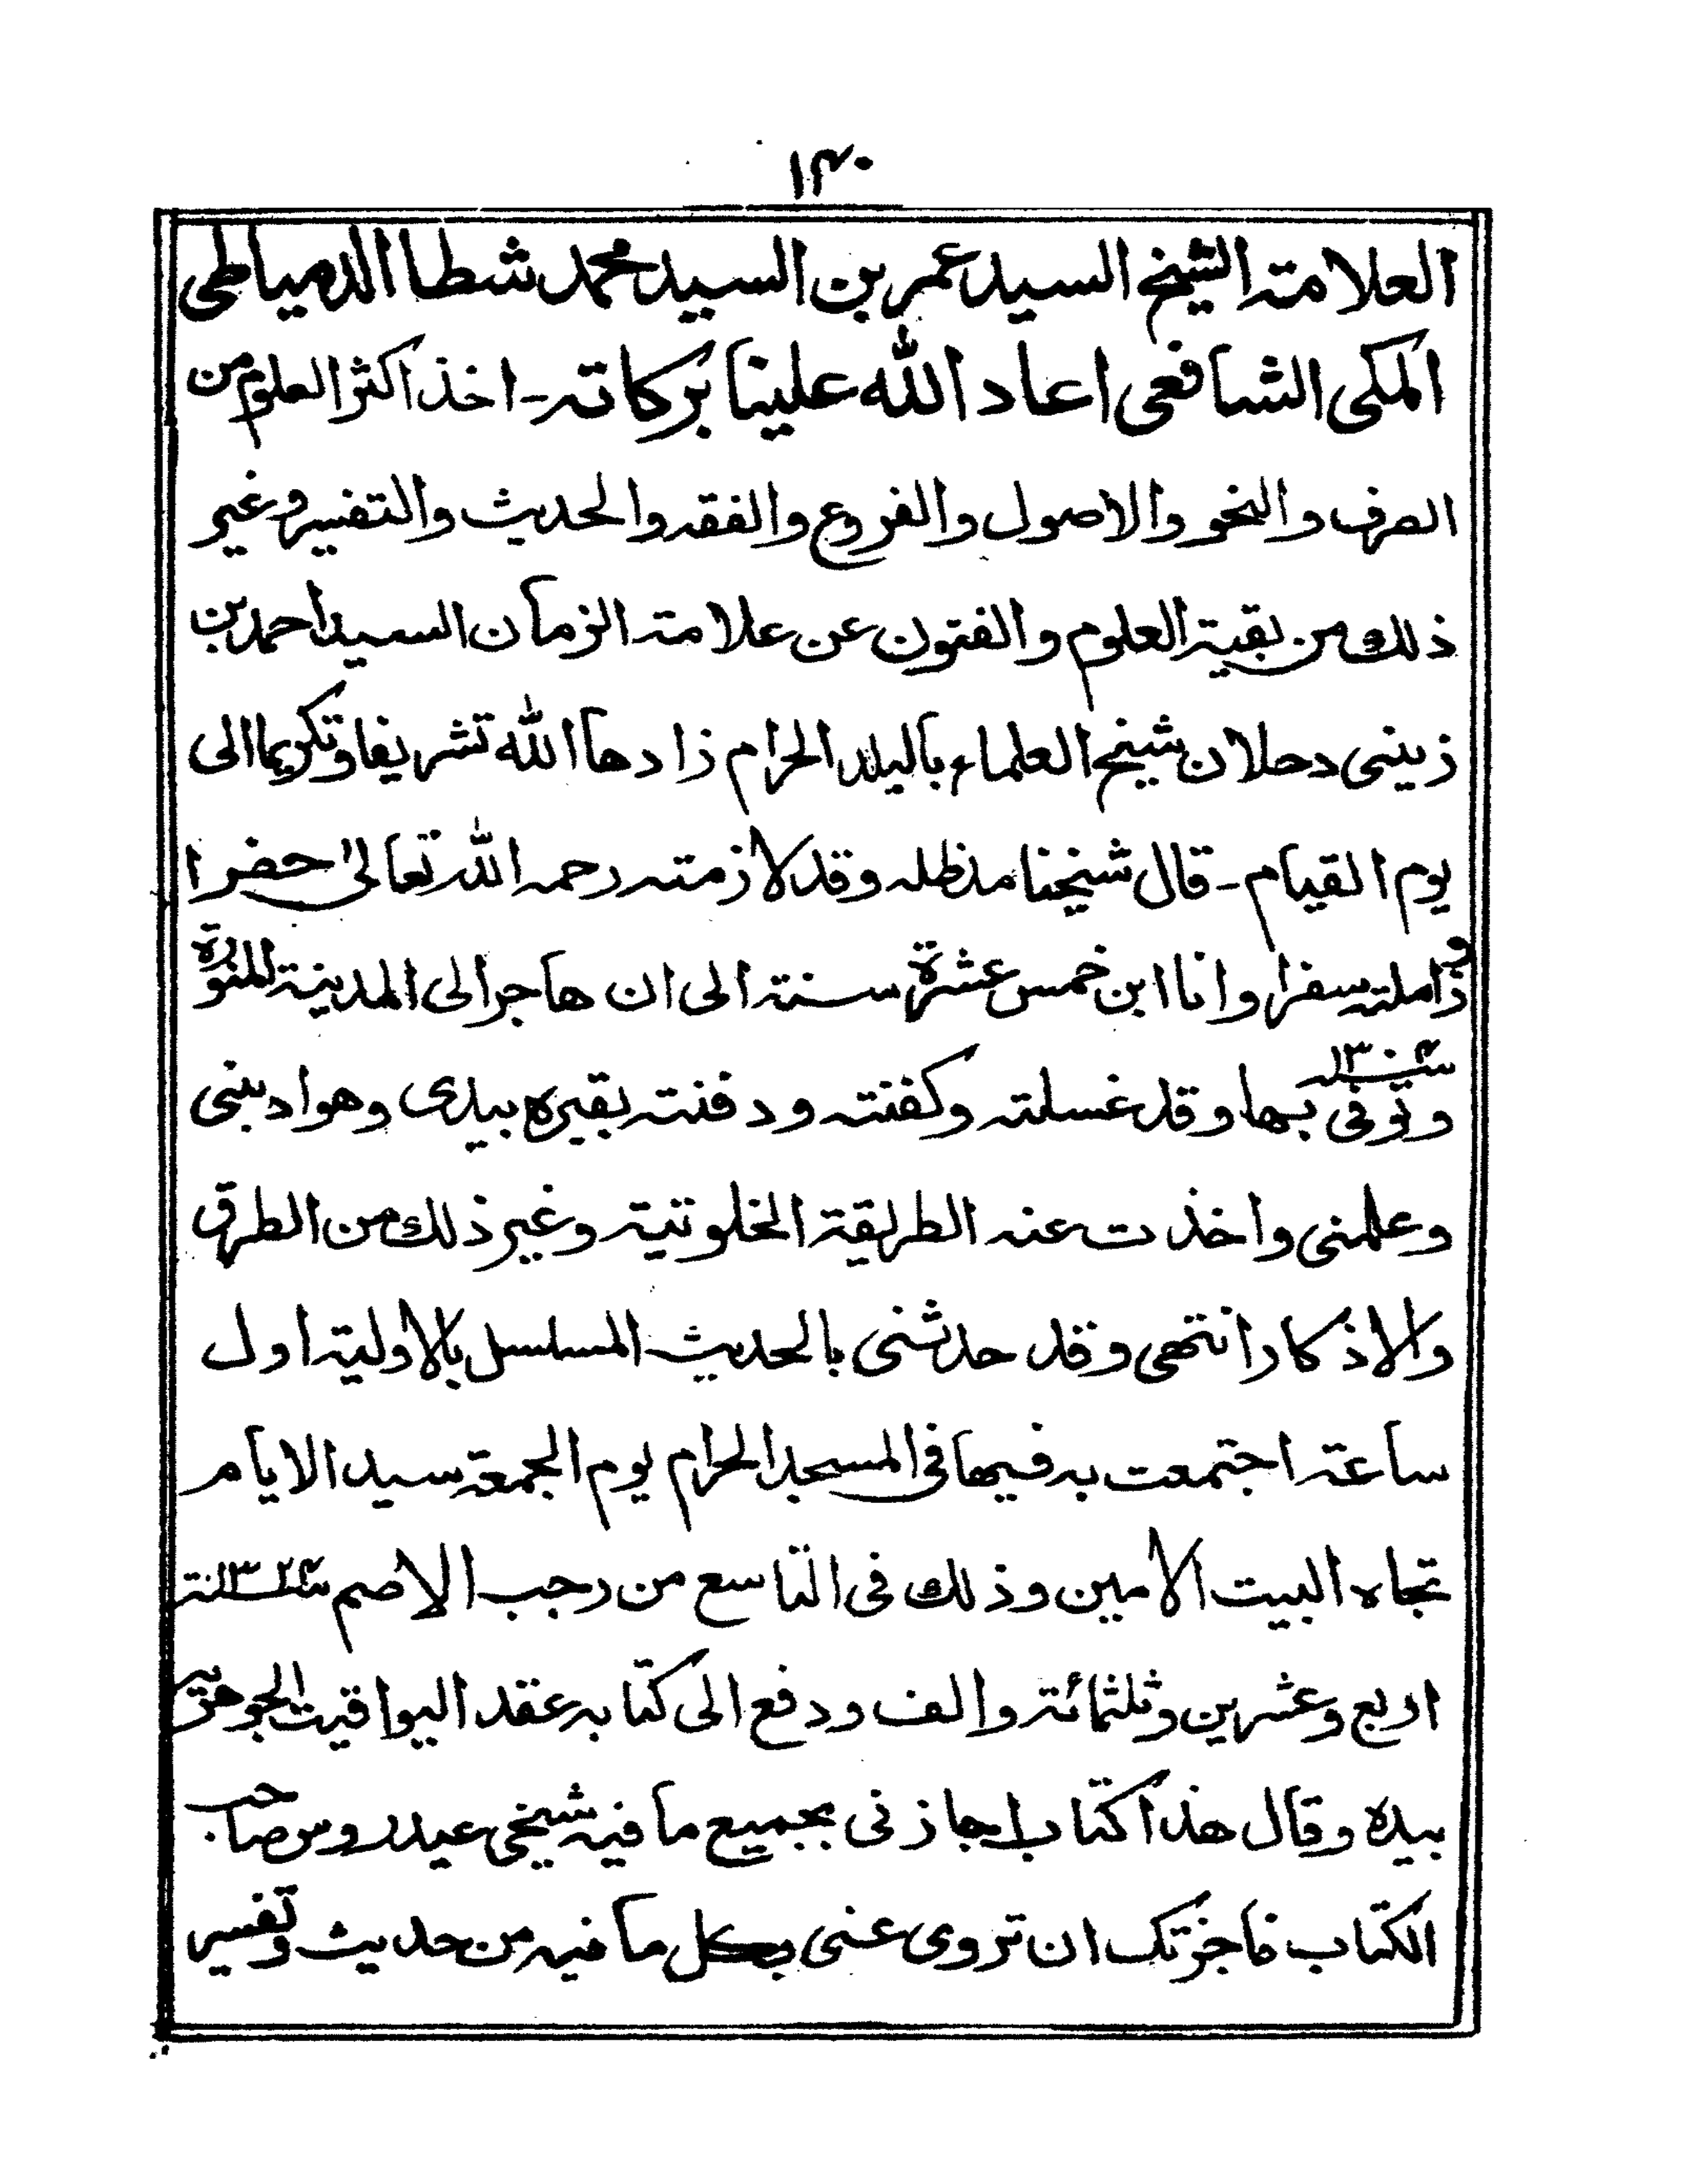 ١٣٠
العلامة الشيخ السيد عمر بن السيد محمد شطا الدمياطى
المكى الشافعى اعاد الله علينا بركاته ـ اخذ اكثر العلوم من
الصرف والنحو والاصول والفروع والفقه والحديث والتفسير وغير
ذلك من بقية العلوم والفنون عن علامة الزمان السيد احمد بن
زينى دحلان شيخ العلماء بالبلد الحرام زادها الله تشريفا وتكريما الى
يوم القيام ـ قال شيخنا مد ظله وقد لازمته رحمه الله تعالى حضرا
و زاملته سفرا وانا ابن خمس عشرة سنة الى ان هاجر الى المدينة المنورة
وتوفى بها وقد غسلته وكفنته ودفنته بقبره بيدى وهو ادبنى
وعلمنى واخذت عنه الطريقة الخلوتية وغير ذلك من الطرق
والاذكار انتهى وقد حدثنى بالحديث المسلسل بالاولية اول
ساعة اجتمعت به فيها فى المسجد الحرام يوم الجمعة سيد الايام
تجاه البيت الامين وذلك فى التاسع من رجب الاصم سنة ١٣٢٤
اربع وعشرين وثلثمائة والف ودفع الى كتابه عقد اليواقيت الجوهرية
بيده وقال هذا كتاب اجازنى بجميع ما فيه شيخى عيدروس صاحب
الكتاب فاجزتك ان تروى عنى بكل ما فيه من حديث وتفسير